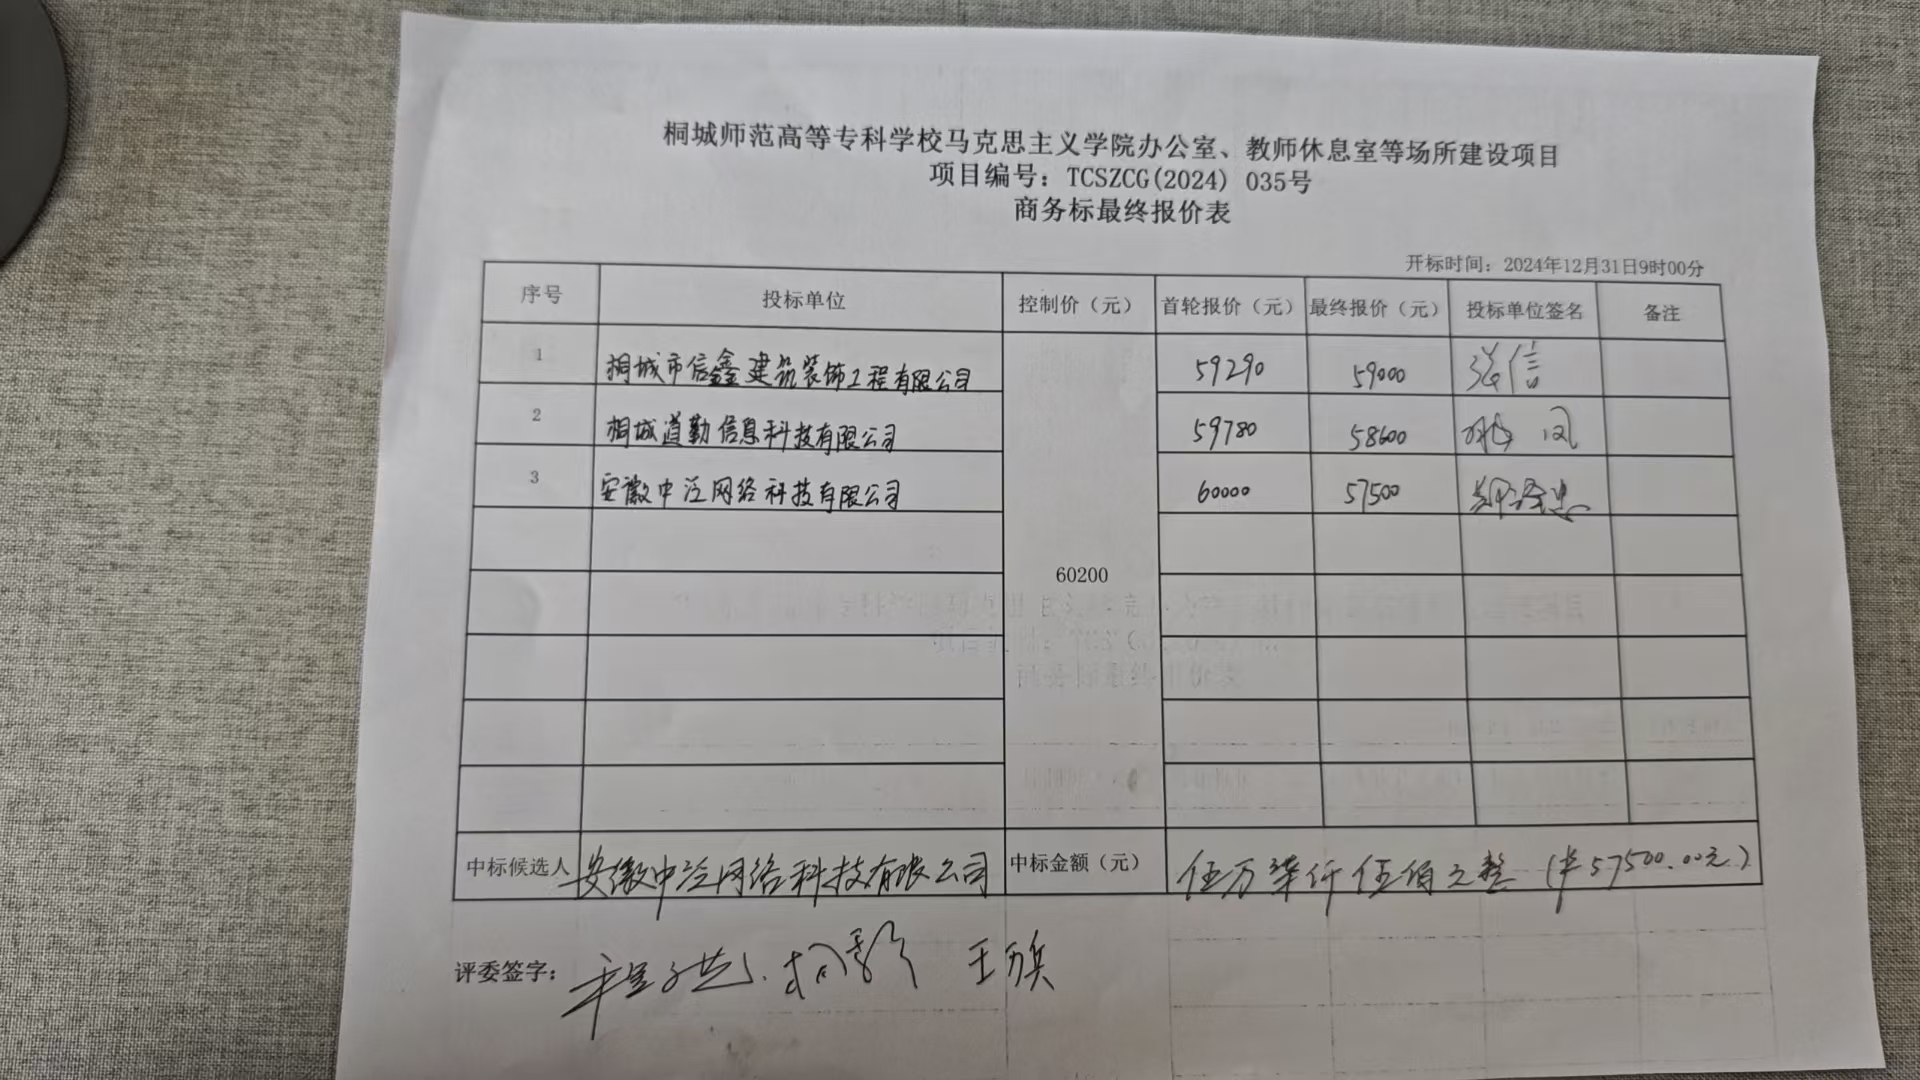 桐城师范高等专科学校马克思主义学院办公室、教师休息室等场所建设项目
项目编号：TCSZCG(2024) 035号
商务标最终报价表
开标时间：2024年12月31日9时00分
序号 投标单位 控制价（元） 首轮报价（元） 最终报价（元） 投标单位签名 备注
1 桐城市信鑫建筑装饰工程有限公司 59290 59000 张信
2 桐城道勤信息科技有限公司 59780 58600
3 安徽中泛网络科技有限公司 60000 57500
60200
中标候选人 安徽中泛网络科技有限公司 中标金额（元） 伍万柒仟伍佰元整（¥57500.00元）
评委签字：